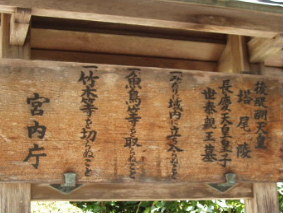 後醍醐天皇
塔尾陵
長慶天皇皇子
世泰親王墓
一みだりに域内に立入らぬこと
一魚鳥等を取らぬこと
一竹木等を切らぬこと
宮内庁